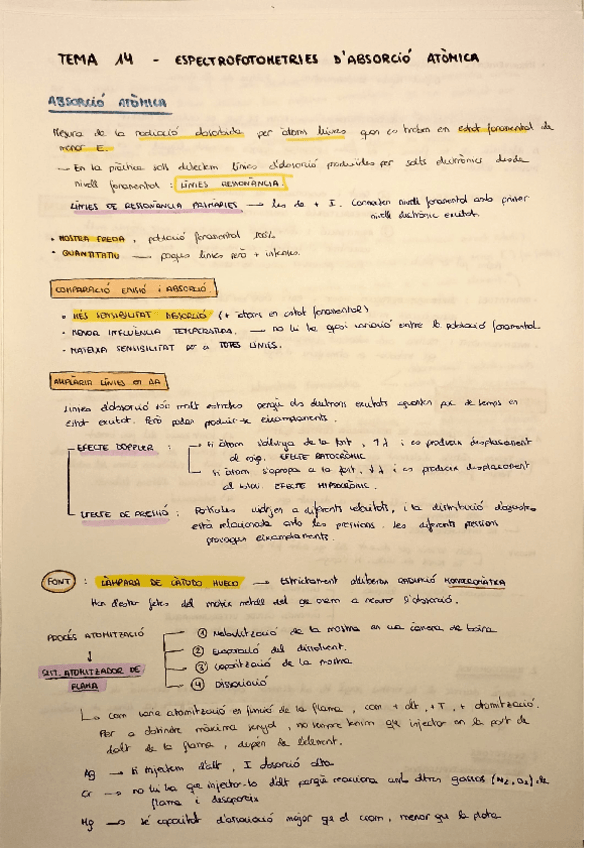 TEMA 14 - ESPECTROFOTOMETRIES D'ABSORCIÓ ATÒMICA
ABSORCIÓ ATÒMICA
Mesura de la radiació absorbida per àtoms lliures que es troben en estat fonamental de
menor E.
→ En la pràctica sols detectem línies d'absorció produïdes per salts electrònics desde
nivell fonamental : LÍNIES RESSONÀNCIA.
LÍNIES DE RESSONÀNCIA PRIMÀRIES → les de + I. Connecten nivell fonamental amb primer
nivell electrònic excitat.
• MOSTRA FREDA, població fonamental 100%
• QUANTITATIU → poques línies però + intenses.
COMPARACIÓ EMISIÓ I ABSORCIÓ
• MÉS SENSIBILITAT ABSORCIÓ (+ àtoms en estat fonamental)
• MENOR INFLUÈNCIA TEMPERATURA. → no hi ha quasi variació entre la població fonamental.
• MATEIXA SENSIBILITAT PER A TOTES LÍNIES.
AMPLÀRIA LÍNIES EN AA
Línies d'absorció són molt estretes perquè els electrons excitats queden poc de temps en
estat excitat. Però poden produir-se eixamplaments.
EFECTE DOPPLER : → si àtom s'allunya de la font, ↑ λ i es produeix desplaçament
al roig. EFECTE BATOCRÒMIC
→ Si àtom s'apropa a la font, ↓ λ i es produeix desplaçament
al blau. EFECTE HIPSOCRÒMIC.
EFECTE DE PRESSIÓ : Partícules viatgen a diferents velocitats, i la distribució d'aquestes
està relacionada amb les pressions. Les diferents pressions
provoquen eixamplaments.
FONT : LÀMPARA DE CÀTODO HUECO → Estrictament deuberia radiació MONOCROMÀTIKA
Han d'estar fetes del mateix metall del que anem a mesurar l'absorció.
PROCÉS ATOMITZACIÓ
↓
SIST. ATOMITZADOR DE
FLAMA
① Nebulització de la mostra en una càmera de boira
② Evaporació del dissolvent.
③ Vaporització de la mostra
④ Dissociació
↳ com varia atomització en funció de la flama, com + alt, + T, + atomització.
Per a obtindre màxima senyal, no sempre tenim que injectar en la part de
dalt de la flama, depén de l'element.
Ag → si injectem d'alt, I absorció alta.
Cr → no hi ha que injectar-lo d'alt perquè reacciona amb altres gasos (N₂, O₂) de
flama i desapareix
Mg → té capacitat d'associació major que el crom, menor que la plata